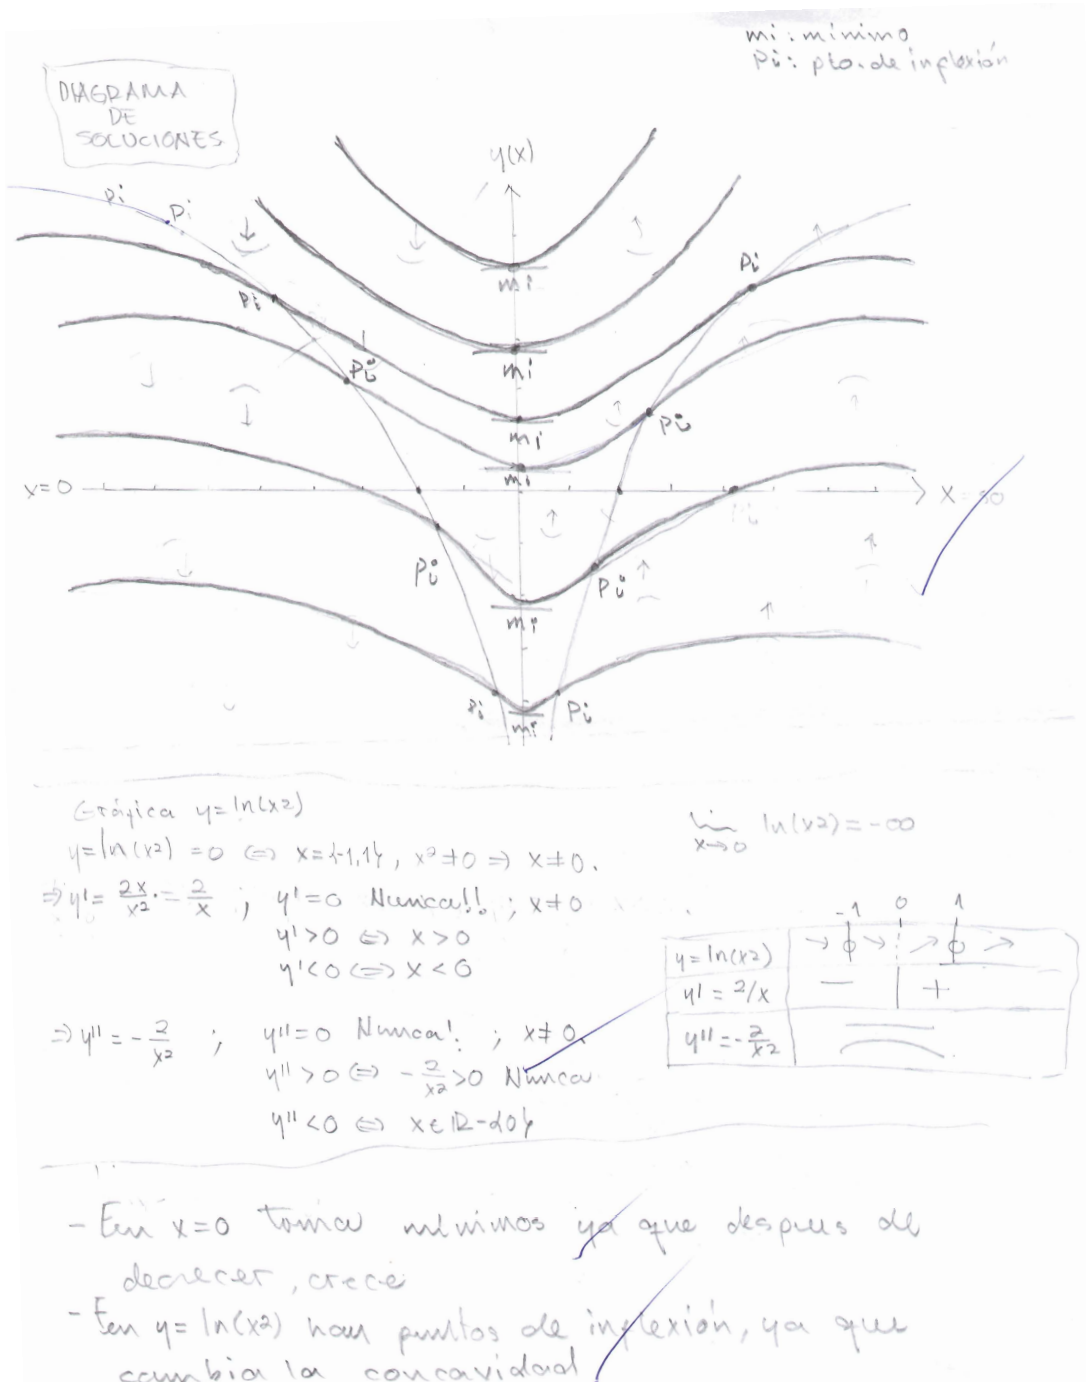 mi: mínimo
Pi: pto. de inflexión
DIAGRAMA
DE
SOLUCIONES
y(x)
Pi
Pi
Pi
Pi
Pi
Pi
Pi
Pi
Pi
Pi
mi
mi
mi
mi
mi
mi
x=0
X
Gráfica y=ln(x2)
y=ln(x²) =0 ⇔ x={-1,1}, x²≠0 ⇒ x≠0.
lim ln(x2) = -∞
x→0
⇒ y' = 2x/x² = 2/x ; y'=0 Nunca!! ; x≠0
y'>0 ⇔ x>0
y'<0 ⇔ x<0
-1 0 1
y=ln(x2)
y' = 2/x - +
y'' = -2/x2
⇒ y'' = -2/x² ; y''=0 Nunca! ; x≠0
y''>0 ⇔ -2/x2>0 Nunca
y''<0 ⇔ x∈R-{0}
- En x=0 toma mínimos ya que despues de
decrecer, crece
- En y=ln(x2) hay puntos de inflexión, ya que
cambia la concavidad